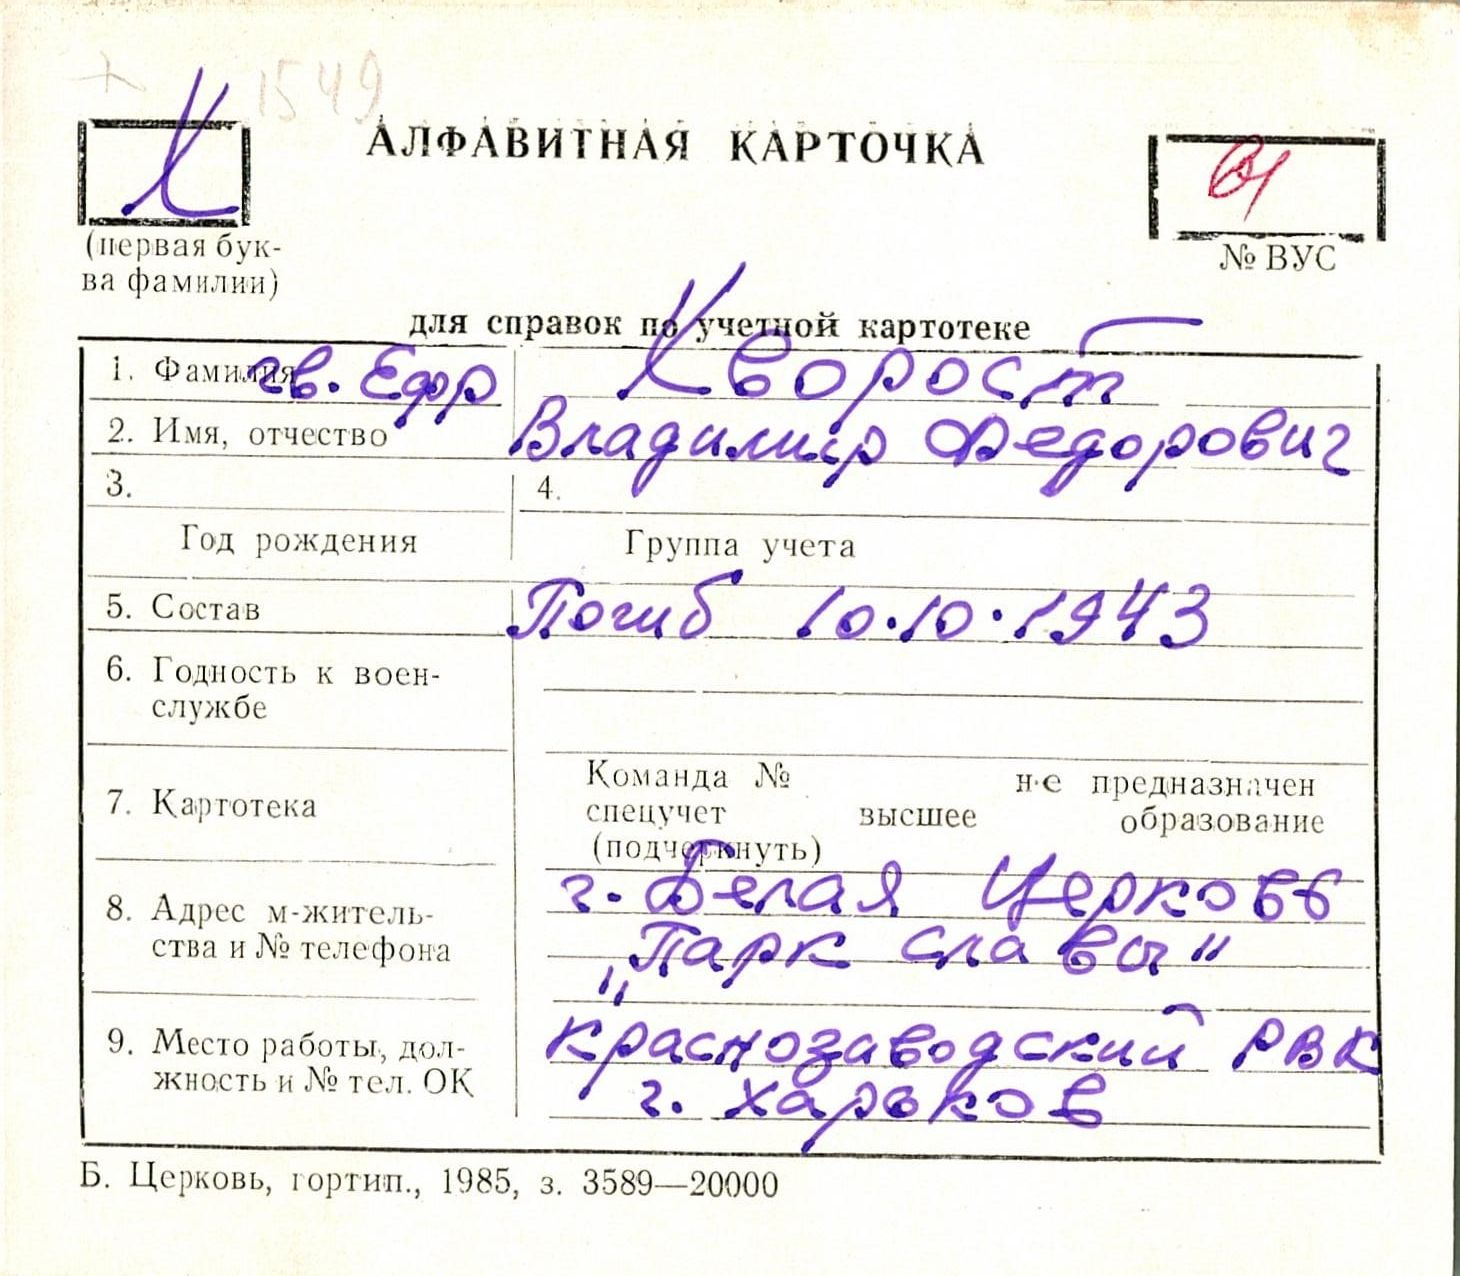 1549
Х
АЛФАВИТНАЯ КАРТОЧКА
(первая бук-
ва фамилии)
№ ВУС
для справок по учетной картотеке
1. Фамилия гв. Ефр Хворост
2. Имя, отчество Владимир Федорович
3. 4.
Год рождения Группа учета
5. Состав Погиб 10.10.1943
6. Годность к воен-
службе
7. Картотека
Команда № не предназначен
спецучет высшее образование
(подчеркнуть)
8. Адрес м-житель-
ства и № телефона
г. Белая Церковь
„Парк славы"
9. Место работы, дол-
жность и № тел. ОК
Краснозаводский РВК
г. Харьков
Б. Церковь, гортип., 1985, з. 3589—20000